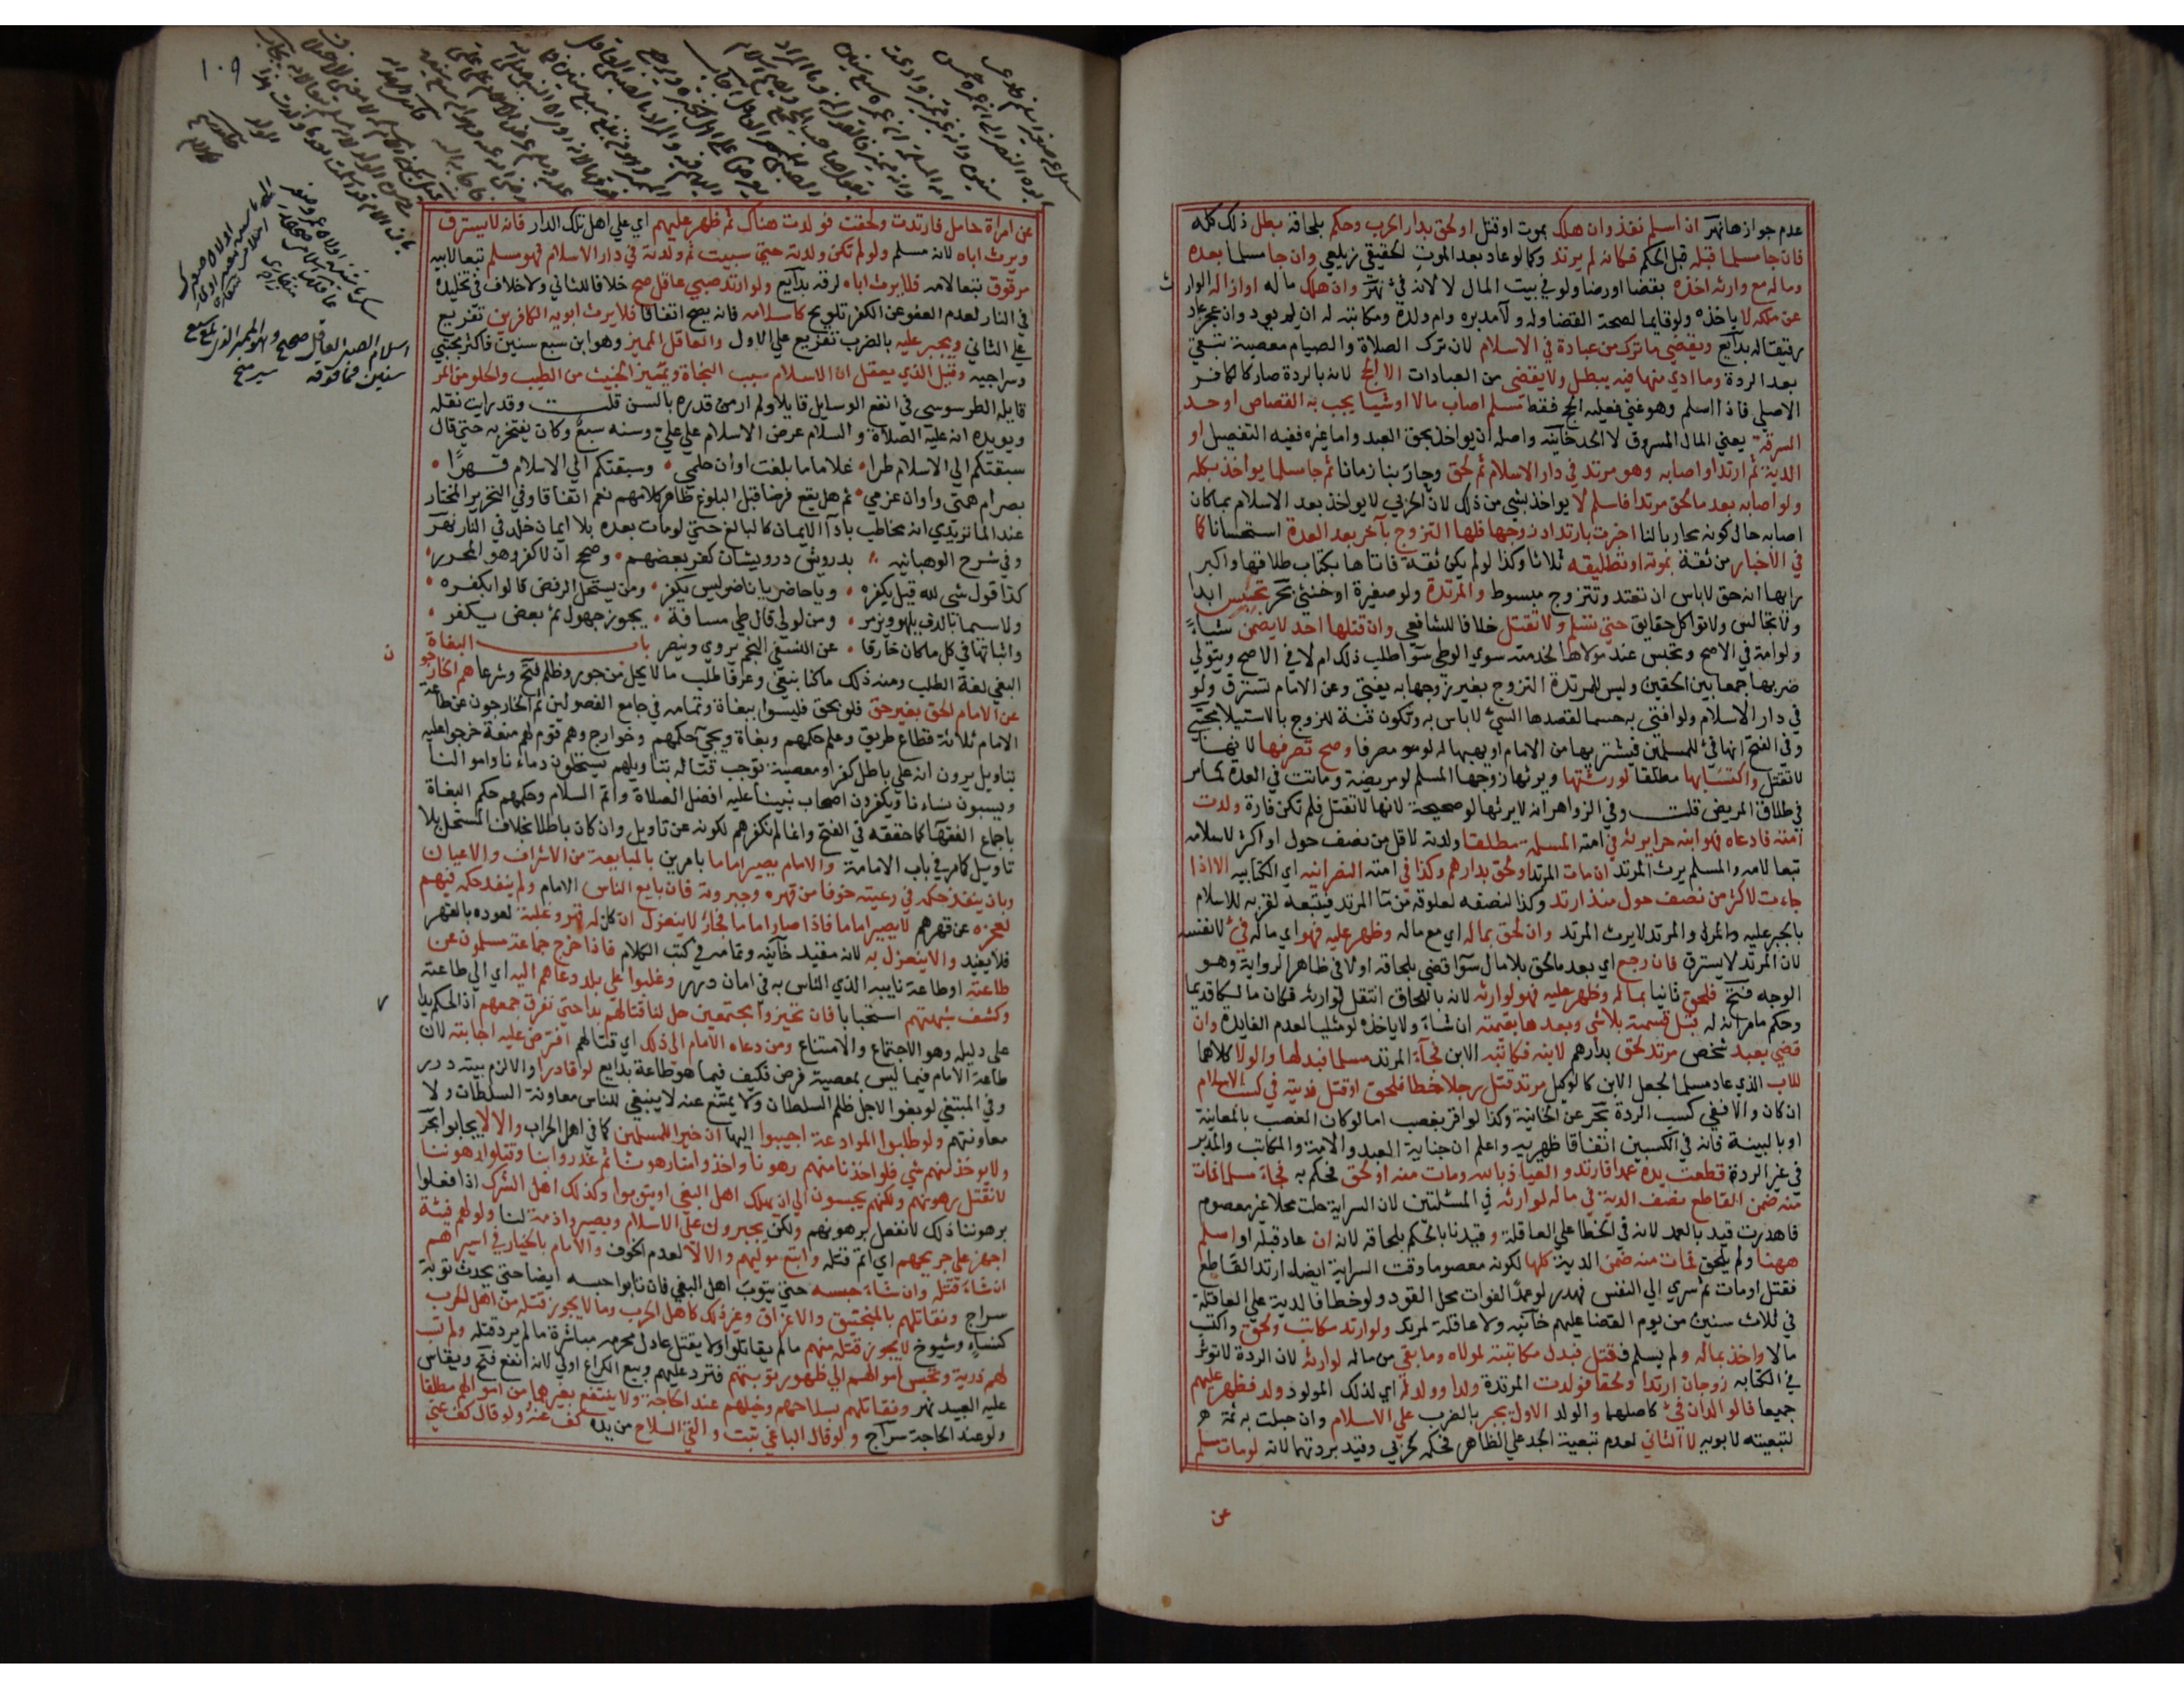 عدم جوازها نهر ان اسلم نفذ وان هلك بموت او قتل او لحق بدار الحرب وحكم بلحاقه بطل ذلك كله
فان جا مسلما قبله قبل الحكم فكانه لم يرتد وكما لو عاد بعد الموت الحقيقي زيلعي وان جا مسلما بعده
وماله مع وارثه اخذه بقضا او رضا ولو في بيت المال لا لانه فئ نهر وان هلك ماله او ازاله الوار
ث
عن ملكه لا ياخذه ولو قايما لصحة القضا وله ولآ مدبره وام ولده ومكاتبه له ان لم يود وان عجز عاد
رقيقا له بدآيع ويقضي ما ترك من عبادة في الاسلام لان ترك الصلاة والصيام معصية تبقي
بعد الردة وما ادي منها فيه يبطل ولا يقضى من العبادات الا الحج لانه بالردة صار كالكافر
الاصلي فاذا اسلم وهو غني فعليه الحج فقط مسلم اصاب مالا او شيا يجب به القصاص او حد
السرقة يعني المال المسروق لا الحد خآنيه واصله ان يواخذ بحق العبد واما غيره ففيه التفصيل او
الدية ثم ارتد او اصابه وهو مرتد في دار الاسلام ثم لحق وحارَبنا زمانا ثم جا مسلما يواخذ بكله
ولو اصابه بعد ما لحق مرتدا فاسلم لا يواخذ بشي من ذلك لان الحربي لا يواخذ بعد الاسلام بما كان
اصابه حال كونه محاربا لنا اخبرت بارتداد زوجها فلها التزوج بآخر بعد العدة استحسانا كما
في الأخبار من ثقة بموته او تطليقه ثلاثا وكذا لو لم يكن ثقة فاتاها بكتاب طلاقها واكبر
رايها انه حق لاباس ان تعتد وتتزوج مبسوط والمرتدة ولو صغيرة او خنثي بحر تحبس ابدا
ولا تجالس ولا تواكل حقايق حتي تسلم ولا تقتل خلافا للشافعي وان قتلها احد لا يضمن شيأ
ولو امة في الاصح وتحبس عند مولاها لخدمته سوي الوطي سوآ طلب ذلك ام لا في الاصح ويتولي
ضربها جمعا بين الحقين وليس للمرتدة التزوج بغير زوجها به يفتي وعن الامام تسترق ولو
في دار الاسلام ولو افتي به حسما لقصدها السئ لا باس به وتكون قنة للزوج بالاستيلا مجتبي
وفي الفتح انها فئ للمسلمين فيشتريها من الامام او يهبها له لو مصرفا وصح تصرفها لانها
لا تقتل واكتسابها مطلقا لورثتها ويرثها زوجها المسلم لو مريضة وماتت في العدة كما مر
في طلاق المريض قلت وفي الزواهر انه لا يرثها لو صحيحة لانها لا تقتل فلم تكن فارة ولدت
امته فادعاه فهو ابنه حرا يرثه في امته المسلمة مطلقا ولدته لاقل من نصف حول او اكثر لاسلامه
تبعا لامه والمسلم يرث المرتد ان مات المرتد او لحق بدارهم وكذا في امته النصرانيه اي الكتابيه الا اذا
جاءت لاكثر من نصف حول منذ ارتد وكذا لنصفه لعلوقه من مآ المرتد فيتبعه لقربه للاسلام
بالجبر عليه والمرتد لا يرث المرتد وان لحق بماله اي مع ماله وظهر عليه فهو اي ماله فئ لا نفسه
لان المرتد لا يسترق فان رجع اي بعد ما لحق بلا مال سوآ قضي بلحاقه اولا في ظاهر الرواية وهو
الوجه فتح فلحق ثانيا بماله وظهر عليه فهو لوارثه لانه باللحاق انتقل لوارثه فكان مالكا قديما
وحكم ما مر انه له قبل قسمته بلا شي وبعدها بقيمته ان شاء ولا ياخذه لو مثليا لعدم الفايدة وان
قضي بعبد شخص مرتد لحق بدارهم لابنه فكاتبه الابن فجآء المرتد مسلما فبدلها والولا كلاهما
للاب الذي عاد مسلما لجعل الابن كالوكيل مرتد قتل رجلا خطا فلحق او قتل فديته في كسب الاسلام
ان كان والا ففي كسب الردة بحر عن الخانية وكذا لو اقر بغصب اما لو كان الغصب بالمعاينة
او بالبينة فانه في الكسبين اتفاقا ظهيريه واعلم ان جناية العبد والامة والمكاتب والمدبر
في غير الردة قطعت يده عمدا فارتد والعياذ بالله ومات منه او لحق فحكم به فجاء مسلما فمات
منه ضمن القاطع نصف الدية في ماله لوارثه في المسئلتين لان السراية حلت محلا غير معصوم
فاهدرت قيد بالعمد لانه في الخطا علي العاقلة وقيدنا بالحكم بلحاقه لانه ان عاد قبله او اسلم
ههنا ولم يلحق فمات منه ضمن الدية كلها لكونه معصوما وقت السراية ايضا ارتد القاطع
فقتل او مات ثم سري الي النفس فهدر لو عمدا لفوات محل القود ولو خطا فالدية علي العاقلة
في ثلاث سنين من يوم القضا عليهم خآنيه ولا عاقلة لمرتد ولو ارتد مكاتب ولحق واكتسب
مالا واخذ بماله ولم يسلم فقتل فبدل مكاتبته لمولاه وما بقي من ماله لوارثه لان الردة لا توثر
في الكتابه زوجان ارتدا ولحقا فولدت المرتدة ولدا وولد له اي لذلك المولود ولد فظهر عليهم
جميعا فالولدان فئ كاصلهما والولد الاول يجبر بالضرب علي الاسلام وان حبلت به ثمة
لتبعيته لابويه لا الثاني لعدم تبعية الجد علي الظاهر فحكمه كحربي وقيد بردتهما لانه لو مات مسلم
عن
١٠٩
عن امرأة حامل فارتدت ولحقت فولدت هناك ثم ظهر عليهم اي علي اهل تلك الدار فانه لا يسترق
ويرث اباه لانه مسلم ولو لم تكن ولدته حتي سبيت ثم ولدته في دار الاسلام فهو مسلم تبعا لابيه
مرقوق تبعا لامه فلا يرث اباه لرقه بدآيع ولو ارتد صبي عاقل صح خلافا للثاني ولا خلاف في تخليده
في النار لعدم العفو عن الكفر تلويح كاسلامه فانه يصح اتفاقا فلا يرث ابويه الكافرين تفريع
علي الثاني ويجبر عليه بالضرب تفريع علي الاول والعاقل المميز وهو ابن سبع سنين فاكثر مجتبي
وسراجيه وقيل الذي يعقل ان الاسلام سبب النجاة ويتميز الخبيث من الطيب والحلو من المر
قايله الطرسوسي في انفع الوسايل قايلا ولم ار من قدره بالسن قلت وقد رايت نقله
ويويده انه عليه الصلاة والسلام عرض الاسلام علي علي وسنه سبع وكان يفتخر به حتي قال
سبقتكم الي الاسلام طرا • غلاما ما بلغت اوان حلمي • وسبقتكم الي الاسلام قهرًا •
بصارم همتي واوان عزمي • ثم هل يقع فرضا قبل البلوغ ظاهر كلامهم نعم اتفاقا وفي التحرير المختار
عند الماتريدي انه مخاطب بادآ الايمان كالبالغ حتي لو مات بعده بلا ايمان خلد في النار نهر
وفي شرح الوهبانيه بدرويش درويشان كفر بعضهم • وصحح ان لا كفر وهو المحرر •
كذا قول شي لله قيل بكفره • ويا حاضر يا ناضر ليس يكفر • ومن يستحل الرقص قالوا بكفره •
ولا سيما بالدف يلهو ويزمر • ومن لولي قال طي مسافة • يجوز جهول ثم بعض يكفر •
واثباتها في كل ما كان خارقا • عن النسفي النجم يروي وينصر باب البغاة
البغي لغة الطلب ومنه ذلك ما كنا نبغي وعرفا طلب ما لا يحل من جور وظلم فتح وشرعا هم الخار
جو
ن
عن الامام الحق بغير حق فلو بحق فليسوا ببغاة وتمامه في جامع الفصولين ثم الخارجون عن طاعة
الامام ثلاثة قطاع طريق وعلم حكمهم وبغاة ويجئ حكمهم وخوارج وهم قوم لهم منعة خرجوا عليه
بتاويل يرون انه علي باطل كفر او معصية توجب قتاله بتاويلهم يستحلون دماءنا واموالنا
ويسبون نساءنا ويكفرون اصحاب نبينا عليه افضل الصلاة واتم السلام وحكمهم حكم البغاة
باجماع الفقهآ كما حققه في الفتح وانما لم نكفرهم لكونه عن تاويل وان كان باطلا بخلاف المستحل بلا
تاويل كما مر في باب الامامة والامام يصير اماما بامرين بالمبايعة من الاشراف والاعيان
وبان ينفذ حكمه في رعيته خوفا من قهره وجبروته فان بايع الناس الامام ولم ينفذ حكمه فيهم
لعجزه عن قهرهم لا يصير اماما فاذا صار اماما فجار لا ينعزل ان كان له قهر وغلبة لعوده بالقهر
فلا يفيد والا ينعزل به لانه مفيد خآنيه وتمامه في كتب الكلام فاذا خرج جماعة مسلمون عن
طاعته او طاعة نايبه الذي الناس به في امان درر وغلبوا علي بلد دعاهم اليه اي الي طاعته
وكشف شبهتهم استحبابا فان تحيزوا مجتمعين حل لنا قتالهم بدا حتي نفرق جمعهم اذ الحكم يدار
علي دليله وهو الاجتماع والامتناع ومن دعاه الامام الي ذلك اي قتالهم افترض عليه اجابته لان
طاعة الامام فيما ليس بمعصية فرض فكيف فيما هو طاعة بدايع لو قادرا والا لزم بيته درر
وفي المبتغي لو بغوا لاجل ظلم السلطان ولا يمتنع عنه لا ينبغي للناس معاونة السلطان ولا
معاونتهم ولو طلبوا الموادعة اجيبوا اليها ان خيرا للمسلمين كما في اهل الحرب والا لا يجابوا بحر
ولا يوخذ منهم شي فلو اخذنا منهم رهونا واخذوا منا رهونا ثم غدروا بنا وقتلوا رهوننا
لا نقتل رهونهم ولكنهم يحبسون الي ان يهلك اهل البغي او يتوبوا وكذلك اهل الشرك اذا فعلوا
برهوننا ذلك لا نفعل برهونهم ولكن يجبرون علي الاسلام او يصيروا ذمة لنا ولو لهم فيئة
اجهز علي جريحهم اي اتم قتله واتبع موليهم والا لا لعدم الخوف والامام بالخيار في اسيرهم
ان شاء قتله وان شاء حبسه حتي يتوب اهل البغي فان تابوا حبسه ايضا حتي يحدث توبة
سراج ونقاتلهم بالمنجنيق والاغراق وغير ذلك كاهل الحرب وما لا يجوز قتله من اهل الحرب
كنساء وشيوخ لا يجوز قتله منهم ما لم يقاتلوا ولا يقتل عادل محرمه مباشرة ما لم يرد قتله ولم تسب
لهم ذرية وتحبس اموالهم الي ظهور توبتهم فترد عليهم وبيع الكراع اولي لانه انفع فتح ويقاس
عليه العبيد نهر ونقاتلهم بسلاحهم وخيلهم عند الحاجة ولا ينتفع بغيرهما من اموالهم مطلقا
ولو عند الحاجة سراج ولو قال الباغي تبت والقي السلاح من يده كف عنه ولو قال كف عني
اسلام الصبي العاقل صحيح وهو المميز الذي بلغ سبع
سنين فما فوقه